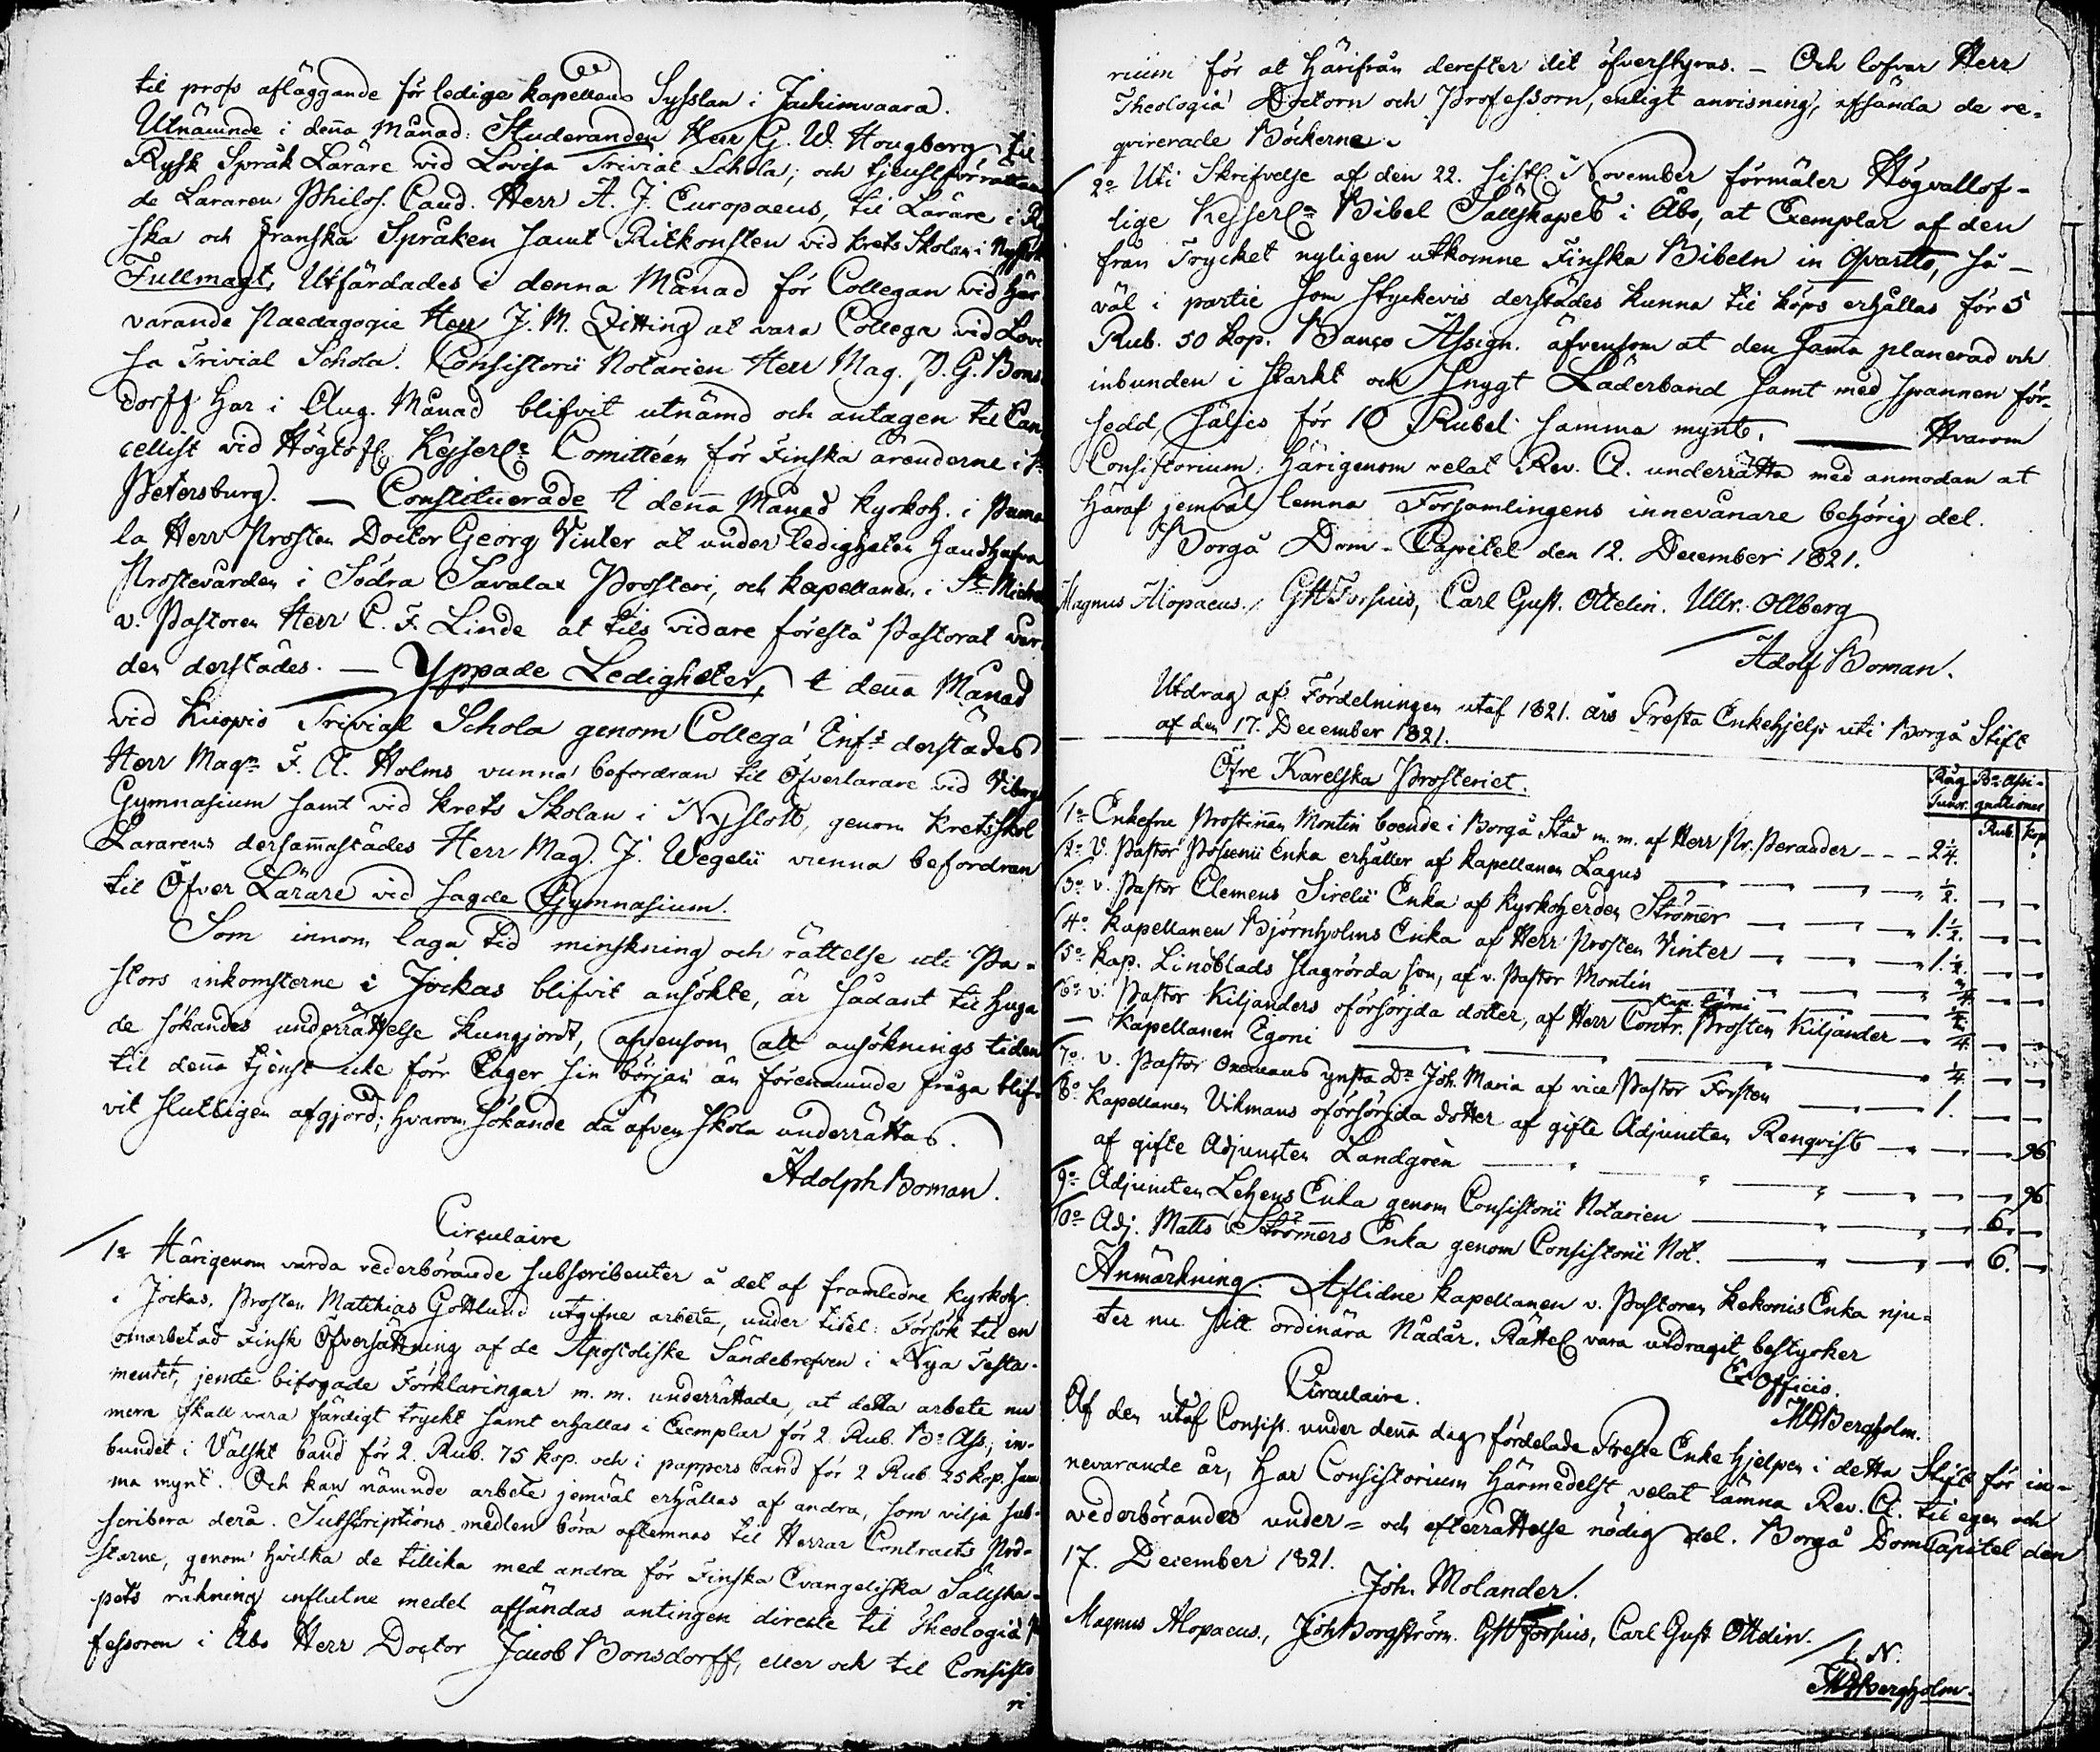 til profs afläggande för ledige kapellans Sysslan i Jackimvaara.
Utnämnde i denna Månad: Studeranden Herr G. W. Hougberg til
Rysk Språk Lärare vid Lovisa Trivial Schola; och tjenstförrättan
de Läraren Philos. Cand. Herr A. J. Europaeus, til Lärare i Ry
ska och Franska Språken samt Ritkonsten vid Krets Skolan i Nyslott
Fullmagt, Utfärdades i denna Månad för Collegan vid här
varande Paedagogie Herr J. M. Zitting at vara Collega vid Lovi
sa Trivial Schola. Consistorii Notarien Herr Mag. P. G. Bons
dorff har i Aug. Månad blifvit utnämd och antagen til Can
cellist vid Högtofl. Kejserl:a Comittéen för Finska ärenderne i S:t
Petersburg. — Constituerade i denna Månad Kyrkoh. i Puma
la Herr Prosten Doctor Georg Vinter at under ledigheten handhafva
Prostevården i Södra Savalax Prosteri, och kapellanen i S:t Michel
v. Pastoren Herr C. F. Linde at tils vidare förestå Pastorat vår
den derstädes. — Yppade Ledigheter, i denna Månad
vid Kuopio Trivial Schola genom Collegæ Inf:s derstädes
Herr Mag:n F. A. Holms vunna befordran til Öfverlärare vid Viborgs
Gymnasium samt vid Krets Skolan i Nyslott, genom Kretsskol
Lärarens dersammastädes Herr Mag. J. Wegelii vunna befordran
til Öfver Lärare vid sagde Gymnasium.
Som innom laga tid minskning och rättelse uti Pa-
stors inkomsterne i Jockas blifvit ansökte, är sådant til huga
de sökandes underrättelse kungjordt, äfvensom att ansöknings tiden
til denna tjenst icke förr tager sin början än förenämnde fråga blif-
vit slutligen afgjord; hvarom sökande då äfven skola underrättas.
Adolph Boman.
Circulaire
1:o Härigenom varda vederbörande subscribenter å det af framledne Kyrkoh.
i Jockas, Prosten Matthias Gottlund utgifne arbete, under titel: Försök til en
omarbetad Finsk Öfversättning af de Apostoliske Sändebrefven i Nya Testa-
mentet, jemte bifogade Förklaringar m. m. underrättade, at detta arbete nu
mera skall vara färdigt tryckt samt erhållas i Exemplar för 2 Rub. B:o Ass; in-
bundet i Välskt band för 2. Rub. 75 kop. och i pappers band för 2 Rub 25 kop. sam
ma mynt. Och kan nämnde arbete jemväl erhållas af andra, som vilja sub-
scribera derå. Subscriptions medlen böra aflemnas til Herrar Contracts Pro-
starne, genom hvilka de tillika med andra för Finska Evangeliska Sällska-
pets räkning influtne medel afsändas antingen directe til Theologiæ Pr
fessoren i Åbo Herr Doctor Jacob Bonsdorff, eller och til Consisto
ri
rium för at härifrån derefter dit öfverstyras. — Och lofvar Herr
Theologiæ Doctorn och Professorn, enligt anvisning, afsända de re-
qvirerade Böckerne.
2:o Uti Skrifvelse af den 22. sistl. November förmäler Högvällof-
lige Kejserl:a Bibel Sällskapet i Åbo, at Exemplar af den
från Trycket nyligen utkomne Finska Bibeln in Qvarto, så-
väl i partie som styckevis derstädes kunna til köps erhållas för 5
Rub. 50 kop. Banco Assign. äfvensom at den samma planerad och
inbunden i starkt och snygt Läderband samt med spännen för-
sedd, säljes för 10 Rubel samma mynt. — Hvarom
Consistorium, härigenom velat Rev. A. underrätta med anmodan at
häraf jemväl lemna Församlingens innevånare behörig del.
Borgå Dom-Capitel den 12. December 1821.
Magnus Alopaeus., GHForsius, Carl Gust. Ottelin. Ullr. Ollberg
Adolf Boman.
Utdrag af Fördelningen utaf 1821. års Tresta Enkehjelp uti Borgå Stift
af den 17. December 1821.
Öfre Karelska Prosteriet.
Råg Tunnr. B:o Assi- gnationer Rub. kop
1:o Enkefru Prostinnan Montin boende i Borgå Stad m. m. af Herr Pr. Perander - - - 2 1/4.
2:o V. Pastor Poppii Enka erhåller af kapellanen Lagus — 1/2.
3:o v. Pastor Clemens Sirelii Enka af Kyrkoherden Strömmer — 1. 1/2.
4:o Kapellanen Björnholms Enka af Herr Prosten Vinter — 1. 1/2.
5:o Kap. Lindblads slagrörda son, af v. Pastor Montin — 1/4
6:o v. Pastor Kiljanders oförsörjda dotter, af Herr Contr. Prosten Kiljander — 1/4
— Kapellanen Egoni — 1/4
7:o v. Pastor Oxenaus ynsta D:r Joh. Maria af vice Pastor Forsten — 1.
8:o Kapellanen Vikmans oförsörjda dotter af gifte Adjuncten Renqvist — 96
af gifte Adjuncten Landgrén — 96
9:o Adjuncten Lehens Enka genom Consistorii Notarien — 6.
10:o Adj. Matts Strömmers Enka genom Consistorii Not. — 6.
Anmärkning. Aflidne kapellanen v. Pastoren Kekonis Enka nju-
ter nu sitt ordinära Nådår. Rättel. vara utdragit bestyrker
Ex Officio.
Bergholm.
Circulaire.
Af den utaf Consist. under denna dag fördelade Tresta Enke hjelpen i detta Stift för in-
nevarande år, har Consistorium härmedelst velat lämna Rev. A. til egen och
vederbörandes under- och efterrättelse nödig del. Borgå DomCapitel den
17. December 1821.
Joh. Molander.
Magnus Alopaeus., Joh Borgström. GHForsius, Carl Gust Ottelin.
l. N.
Bergholm.